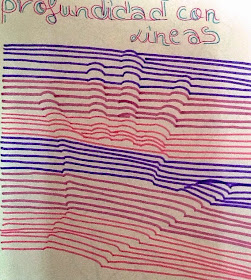 profundidad con
Lineas